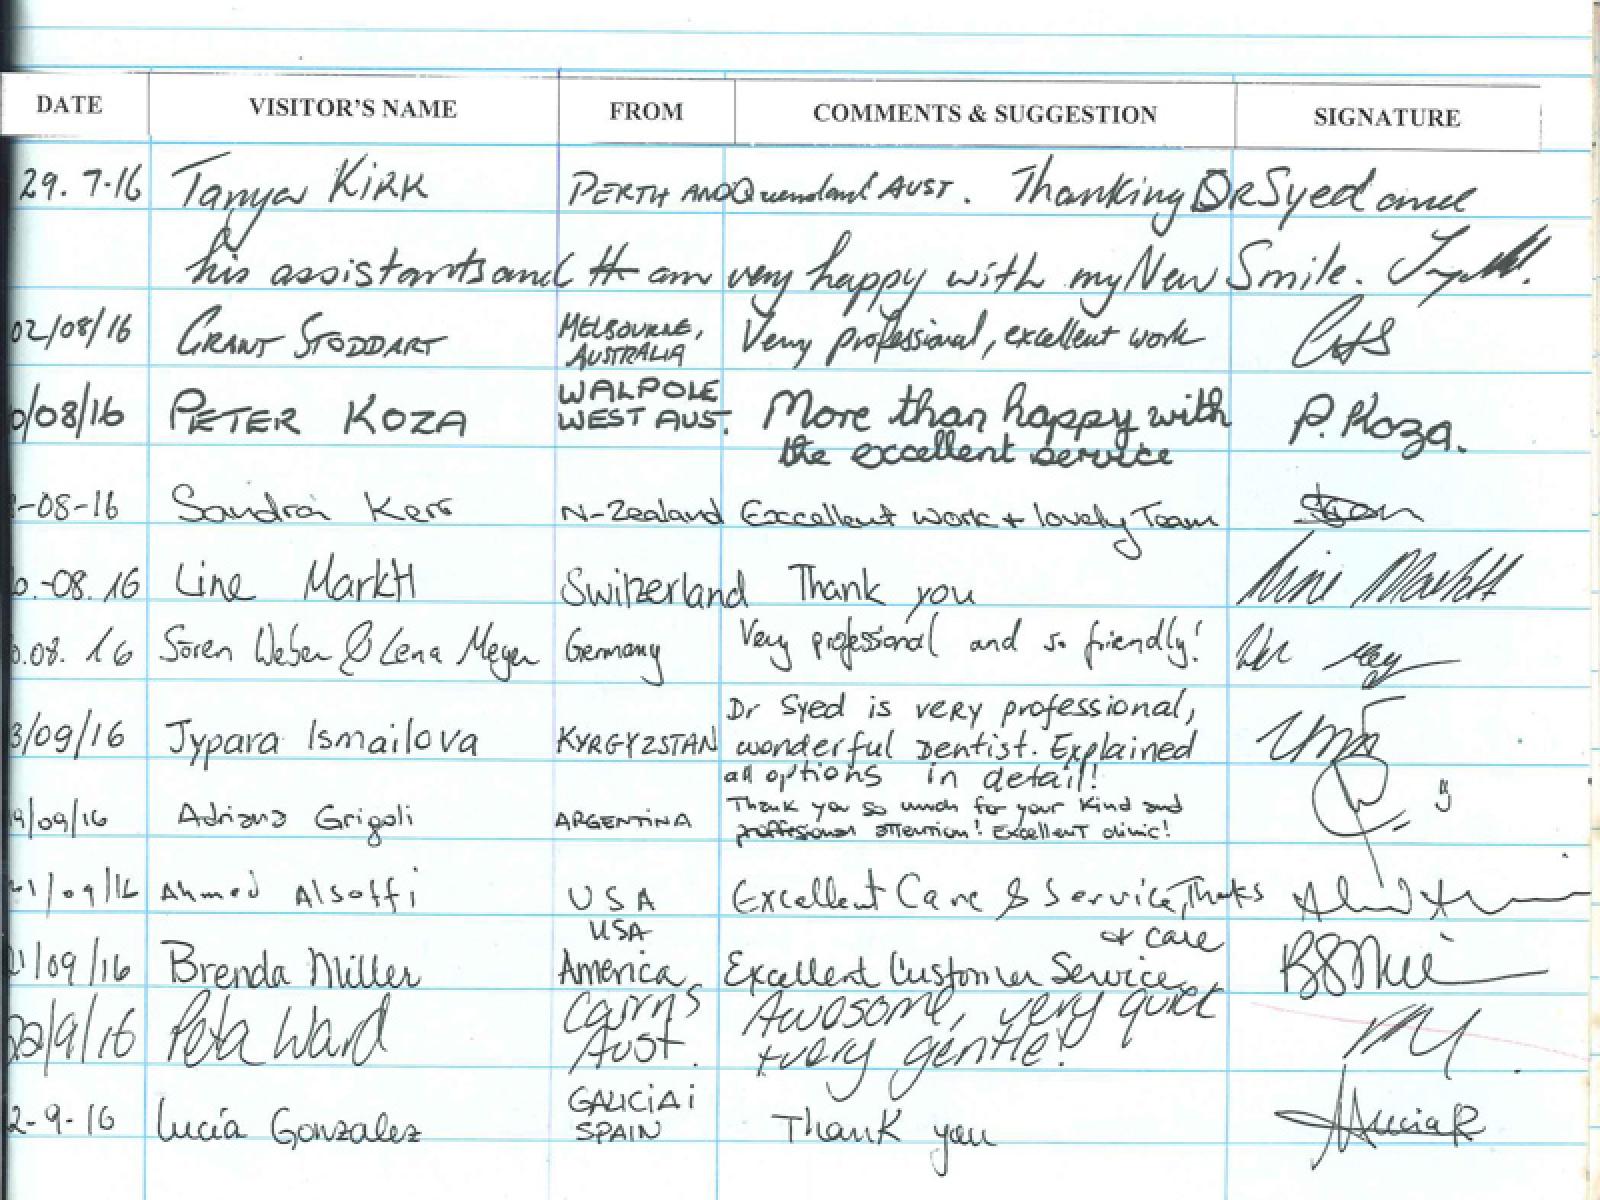 DATE VISITOR'S NAME FROM COMMENTS & SUGGESTION SIGNATURE
29.7-16 Tanya KIRK PERTH AND Queensland AUST. Thanking DR Syed and
his assistants and am very happy with my New Smile.
02/08/16 GRANT STODDART MELBOURNE, Very professional, excellent work
AUSTRALIA
WALPOLE
/08/16 PETER KOZA WEST AUST. More than happy with P. Koza.
the excellent service
-08-16 Sandra Kerr N-Zealand Excellent work + lovely Team
.-08.16 Line Marktl Switzerland Thank you
.08.16 Sören Weber & Lena Meyer Germany Very professional and so friendly!
Dr Syed is very professional,
3/09/16 Jypara Ismailova KYRGYZSTAN wonderful Dentist. Explained
all options in detail!
Thank you so much for your kind and
19/09/16 Adriana Grigoli ARGENTINA proffesional attention! Excellent clinic!
21/09/16 Ahmed Alsoffi USA Excellent Care & Service, Thanks
USA + care
21/09/16 Brenda Miller America Excellent Customer Service
22/9/16 Peta Ward Cairns Awosome, very quiet
Aust. + very gentle!
GALICIA i
2-9-16 Lucía Gonzalez SPAIN Thank you